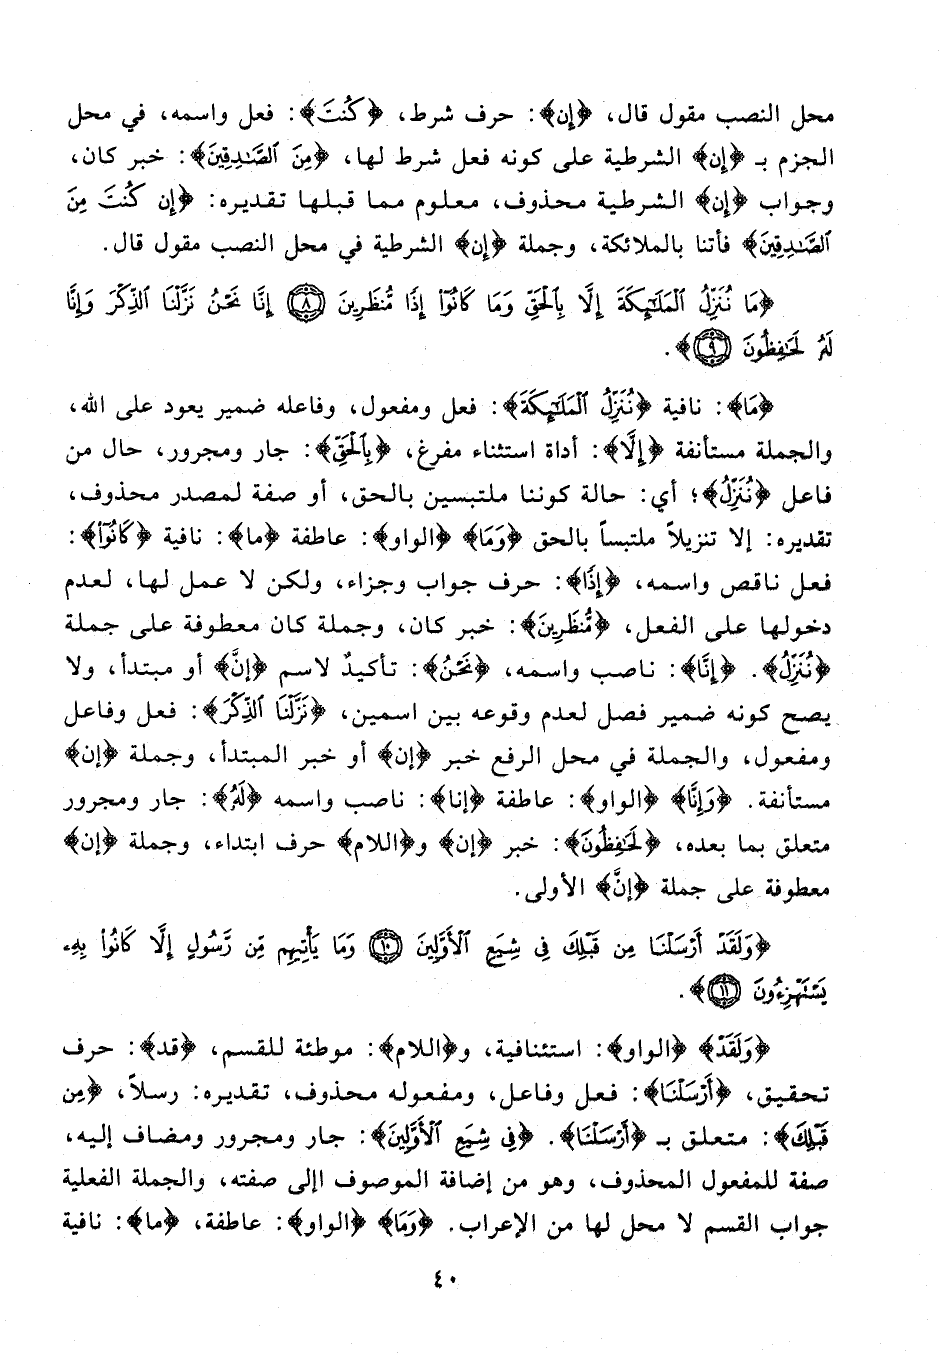 محل النصب مقول قال، ﴿إن﴾: حرف شرط، ﴿كُنتَ﴾: فعل واسمه، في محل
الجزم بـ ﴿إن﴾ الشرطية على كونه فعل شرط لها، ﴿مِنَ ٱلصَّٰدِقِينَ﴾: خبر كان،
وجواب ﴿إن﴾ الشرطية محذوف، معلوم مما قبلها تقديره: ﴿إن كُنتَ مِنَ
ٱلصَّٰدِقِينَ﴾ فأتنا بالملائكة، وجملة ﴿إن﴾ الشرطية في محل النصب مقول قال.
﴿مَا نُنَزِّلُ ٱلْمَلَٰٓئِكَةَ إِلَّا بِٱلْحَقِّ وَمَا كَانُوٓا۟ إِذًا مُّنظَرِينَ ٨ إِنَّا نَحْنُ نَزَّلْنَا ٱلذِّكْرَ وَإِنَّا
لَهُۥ لَحَٰفِظُونَ ٩﴾.
﴿مَا﴾: نافية ﴿نُنَزِّلُ ٱلْمَلَٰٓئِكَةَ﴾: فعل ومفعول، وفاعله ضمير يعود على الله،
والجملة مستأنفة ﴿إِلَّا﴾: أداة استثناء مفرغ، ﴿بِٱلْحَقِّ﴾: جار ومجرور، حال من
فاعل ﴿نُنَزِّلُ﴾؛ أي: حالة كوننا ملتبسين بالحق، أو صفة لمصدر محذوف،
تقديره: إلا تنزيلاً ملتبساً بالحق ﴿وَمَا﴾ ﴿الواو﴾: عاطفة ﴿ما﴾: نافية ﴿كَانُوٓا۟﴾:
فعل ناقص واسمه، ﴿إِذًا﴾: حرف جواب وجزاء، ولكن لا عمل لها، لعدم
دخولها على الفعل، ﴿مُّنظَرِينَ﴾: خبر كان، وجملة كان معطوفة على جملة
﴿نُنَزِّلُ﴾. ﴿إِنَّا﴾: ناصب واسمه، ﴿نَحْنُ﴾: تأكيدٌ لاسم ﴿إنَّ﴾ أو مبتدأ، ولا
يصح كونه ضمير فصل لعدم وقوعه بين اسمين، ﴿نَزَّلْنَا ٱلذِّكْرَ﴾: فعل وفاعل
ومفعول، والجملة في محل الرفع خبر ﴿إن﴾ أو خبر المبتدأ، وجملة ﴿إن﴾
مستأنفة. ﴿وَإِنَّا﴾ ﴿الواو﴾: عاطفة ﴿إنا﴾: ناصب واسمه ﴿لَهُۥ﴾: جار ومجرور
متعلق بما بعده، ﴿لَحَٰفِظُونَ﴾: خبر ﴿إن﴾ و﴿اللام﴾ حرف ابتداء، وجملة ﴿إن﴾
معطوفة على جملة ﴿إنَّ﴾ الأولى.
﴿وَلَقَدْ أَرْسَلْنَا مِن قَبْلِكَ فِى شِيَعِ ٱلْأَوَّلِينَ ١٠ وَمَا يَأْتِيهِم مِّن رَّسُولٍ إِلَّا كَانُوا۟ بِهِۦ
يَسْتَهْزِءُونَ ١١﴾.
﴿وَلَقَدْ﴾ ﴿الواو﴾: استئنافية، و﴿اللام﴾: موطئة للقسم، ﴿قد﴾: حرف
تحقيق، ﴿أَرْسَلْنَا﴾: فعل وفاعل، ومفعوله محذوف، تقديره: رسلاً، ﴿مِن
قَبْلِكَ﴾: متعلق بـ ﴿أَرْسَلْنَا﴾. ﴿فِى شِيَعِ ٱلْأَوَّلِينَ﴾: جار ومجرور ومضاف إليه،
صفة للمفعول المحذوف، وهو من إضافة الموصوف اإلى صفته، والجملة الفعلية
جواب القسم لا محل لها من الإعراب. ﴿وَمَا﴾ ﴿الواو﴾: عاطفة، ﴿ما﴾: نافية
٤٠